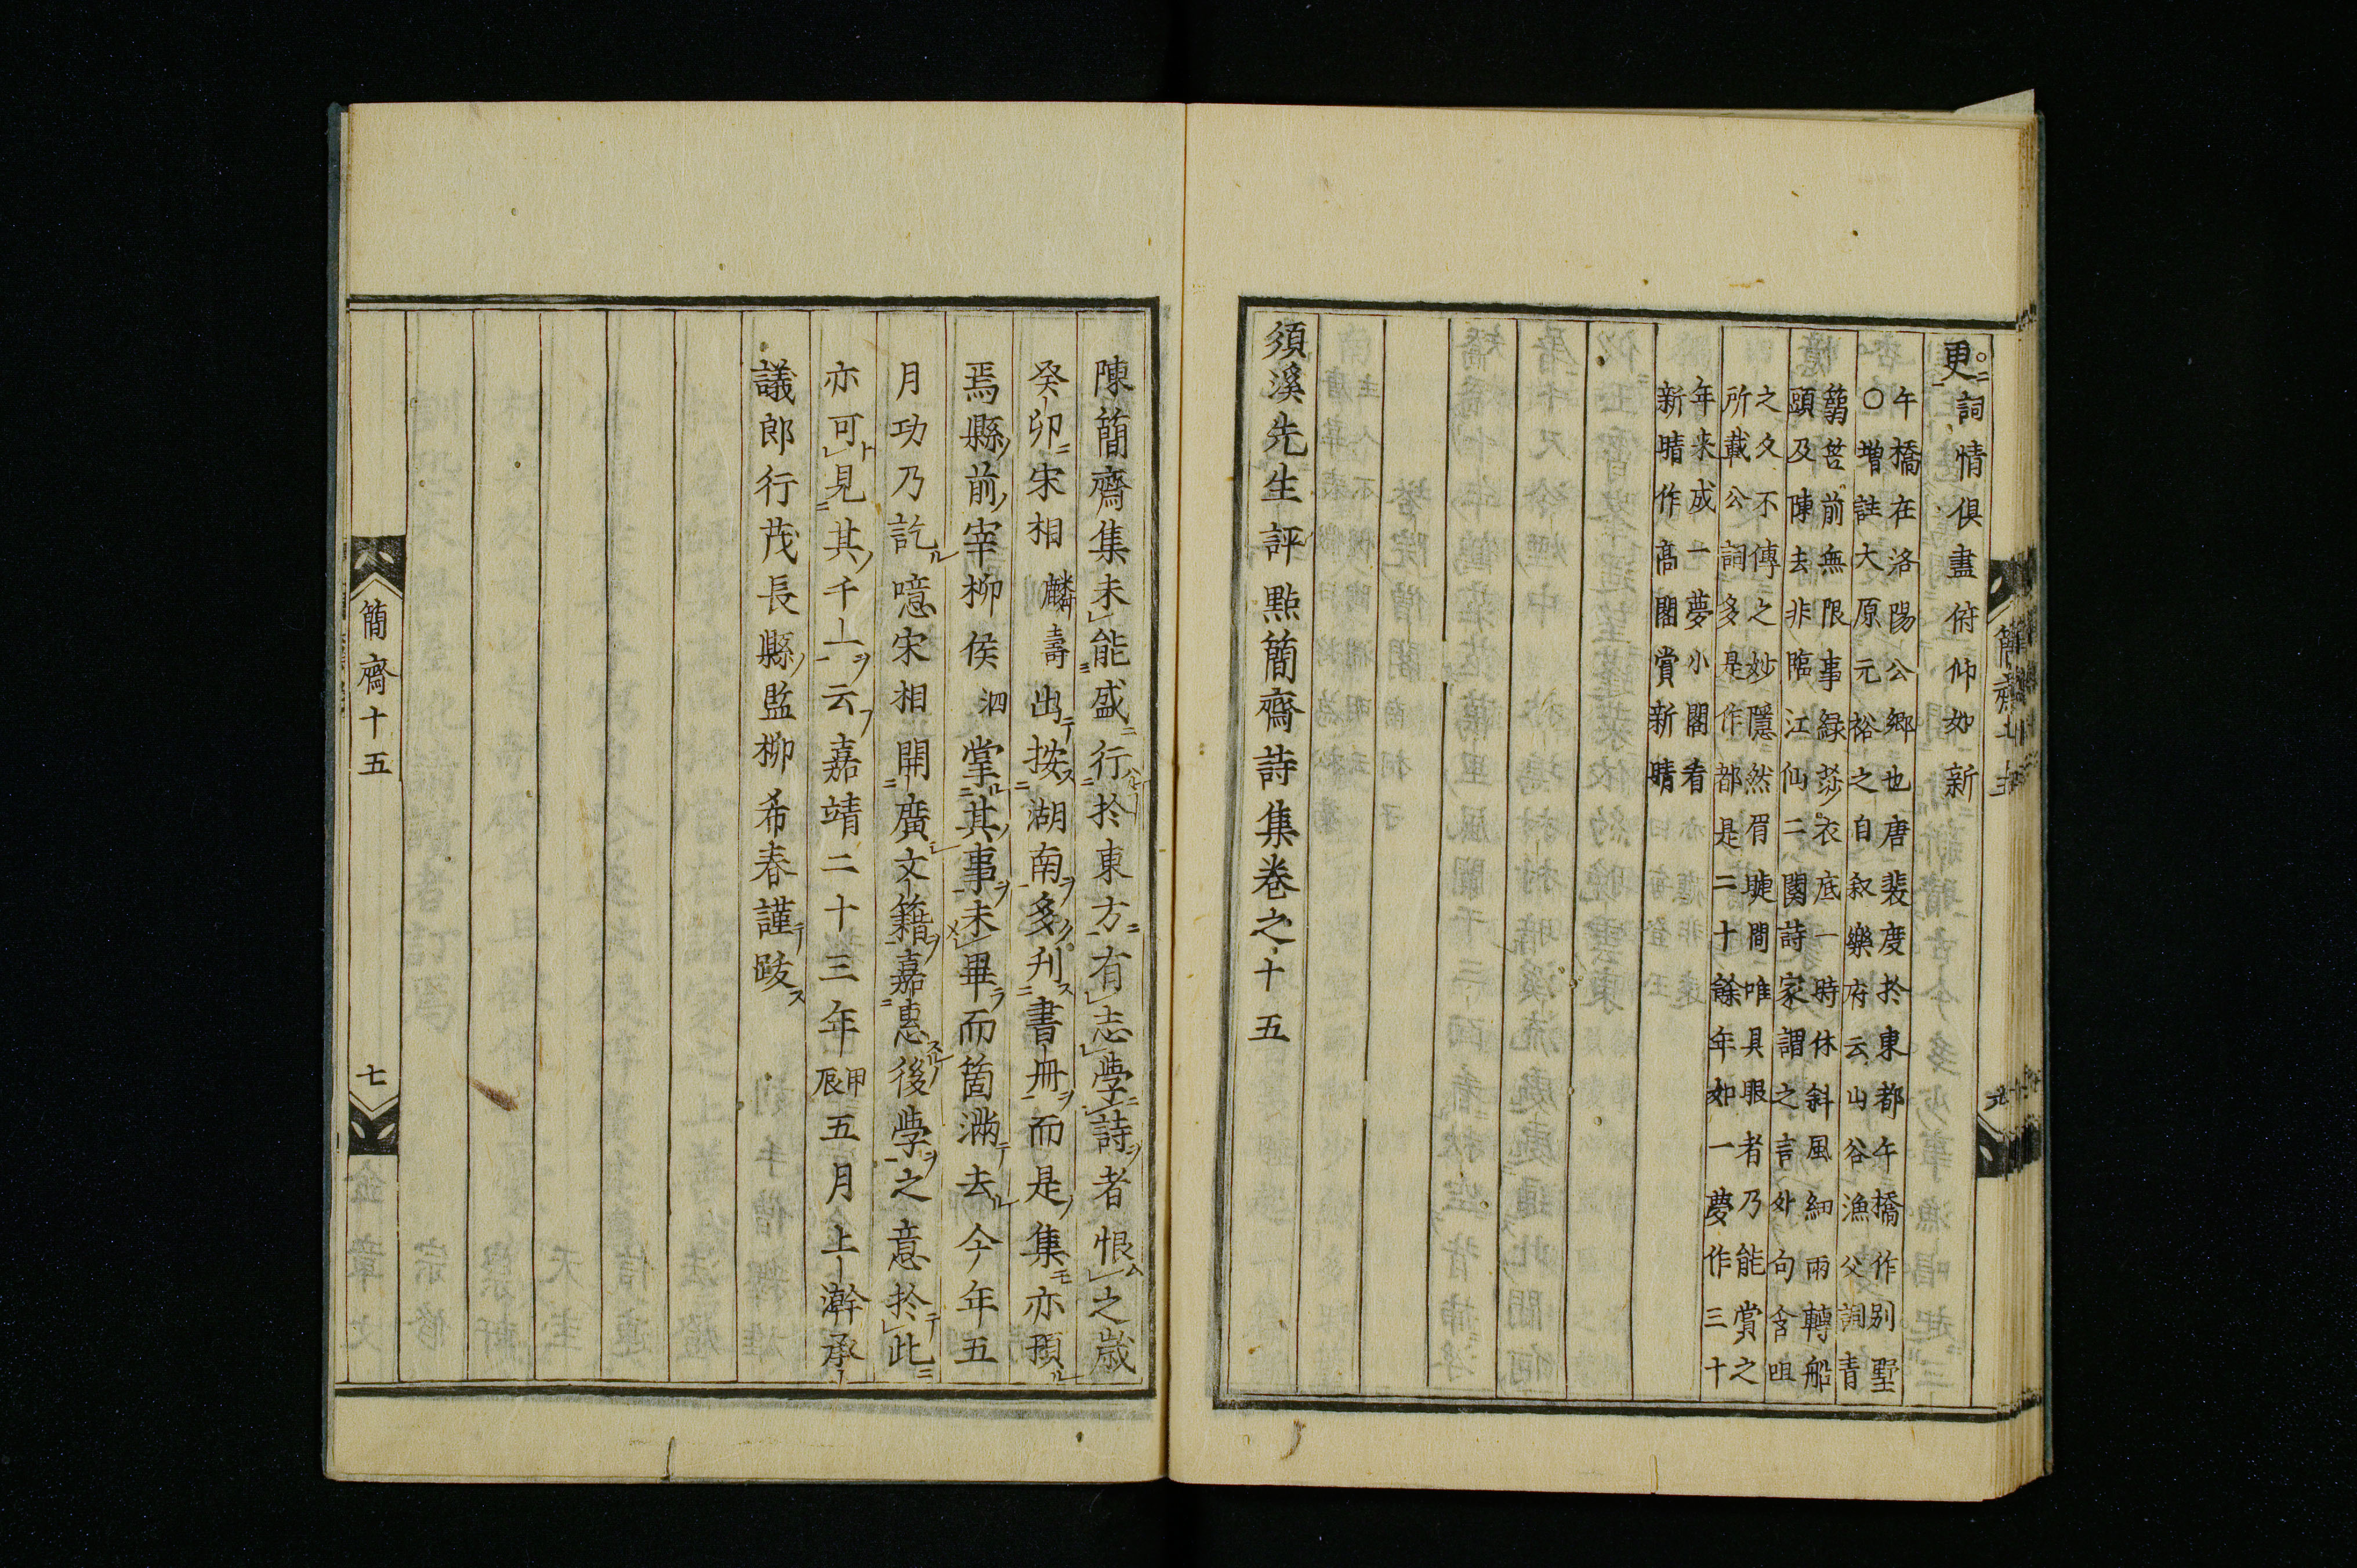 更三詞情俱盡俯仰如新
午橋在洛陽公鄉也唐裴度於東都午橋作別墅
〇增註大原元裕之自叙樂府云山谷漁父詞青
蒻笠前無限事緑莎衣底一時休斜風細雨轉船
頭及陳去非臨江仙二闋詩家謂之言外句含咀
之久不傳之妙隱然眉睫間唯具眼者乃能賞之
所載公詞多是作都是二十餘年如一夢作三十
年来成一夢小閣看
新晴作高閣賞新晴
須溪先生評點簡齋詩集卷之十五
陳簡齋集未能盛行於東方有志學詩者恨之歲
癸卯宋相麟壽出按湖南多刋書冊而是集亦預
焉縣前宰柳侯泗掌其事未畢而箇滿去今年五
月功乃訖噫宋相開廣文籍嘉惠後學之意於此
亦可見其千一云嘉靖二十三年甲辰五月上澣承
議郎行茂長縣監柳希春謹䟦
簡齋十五
七